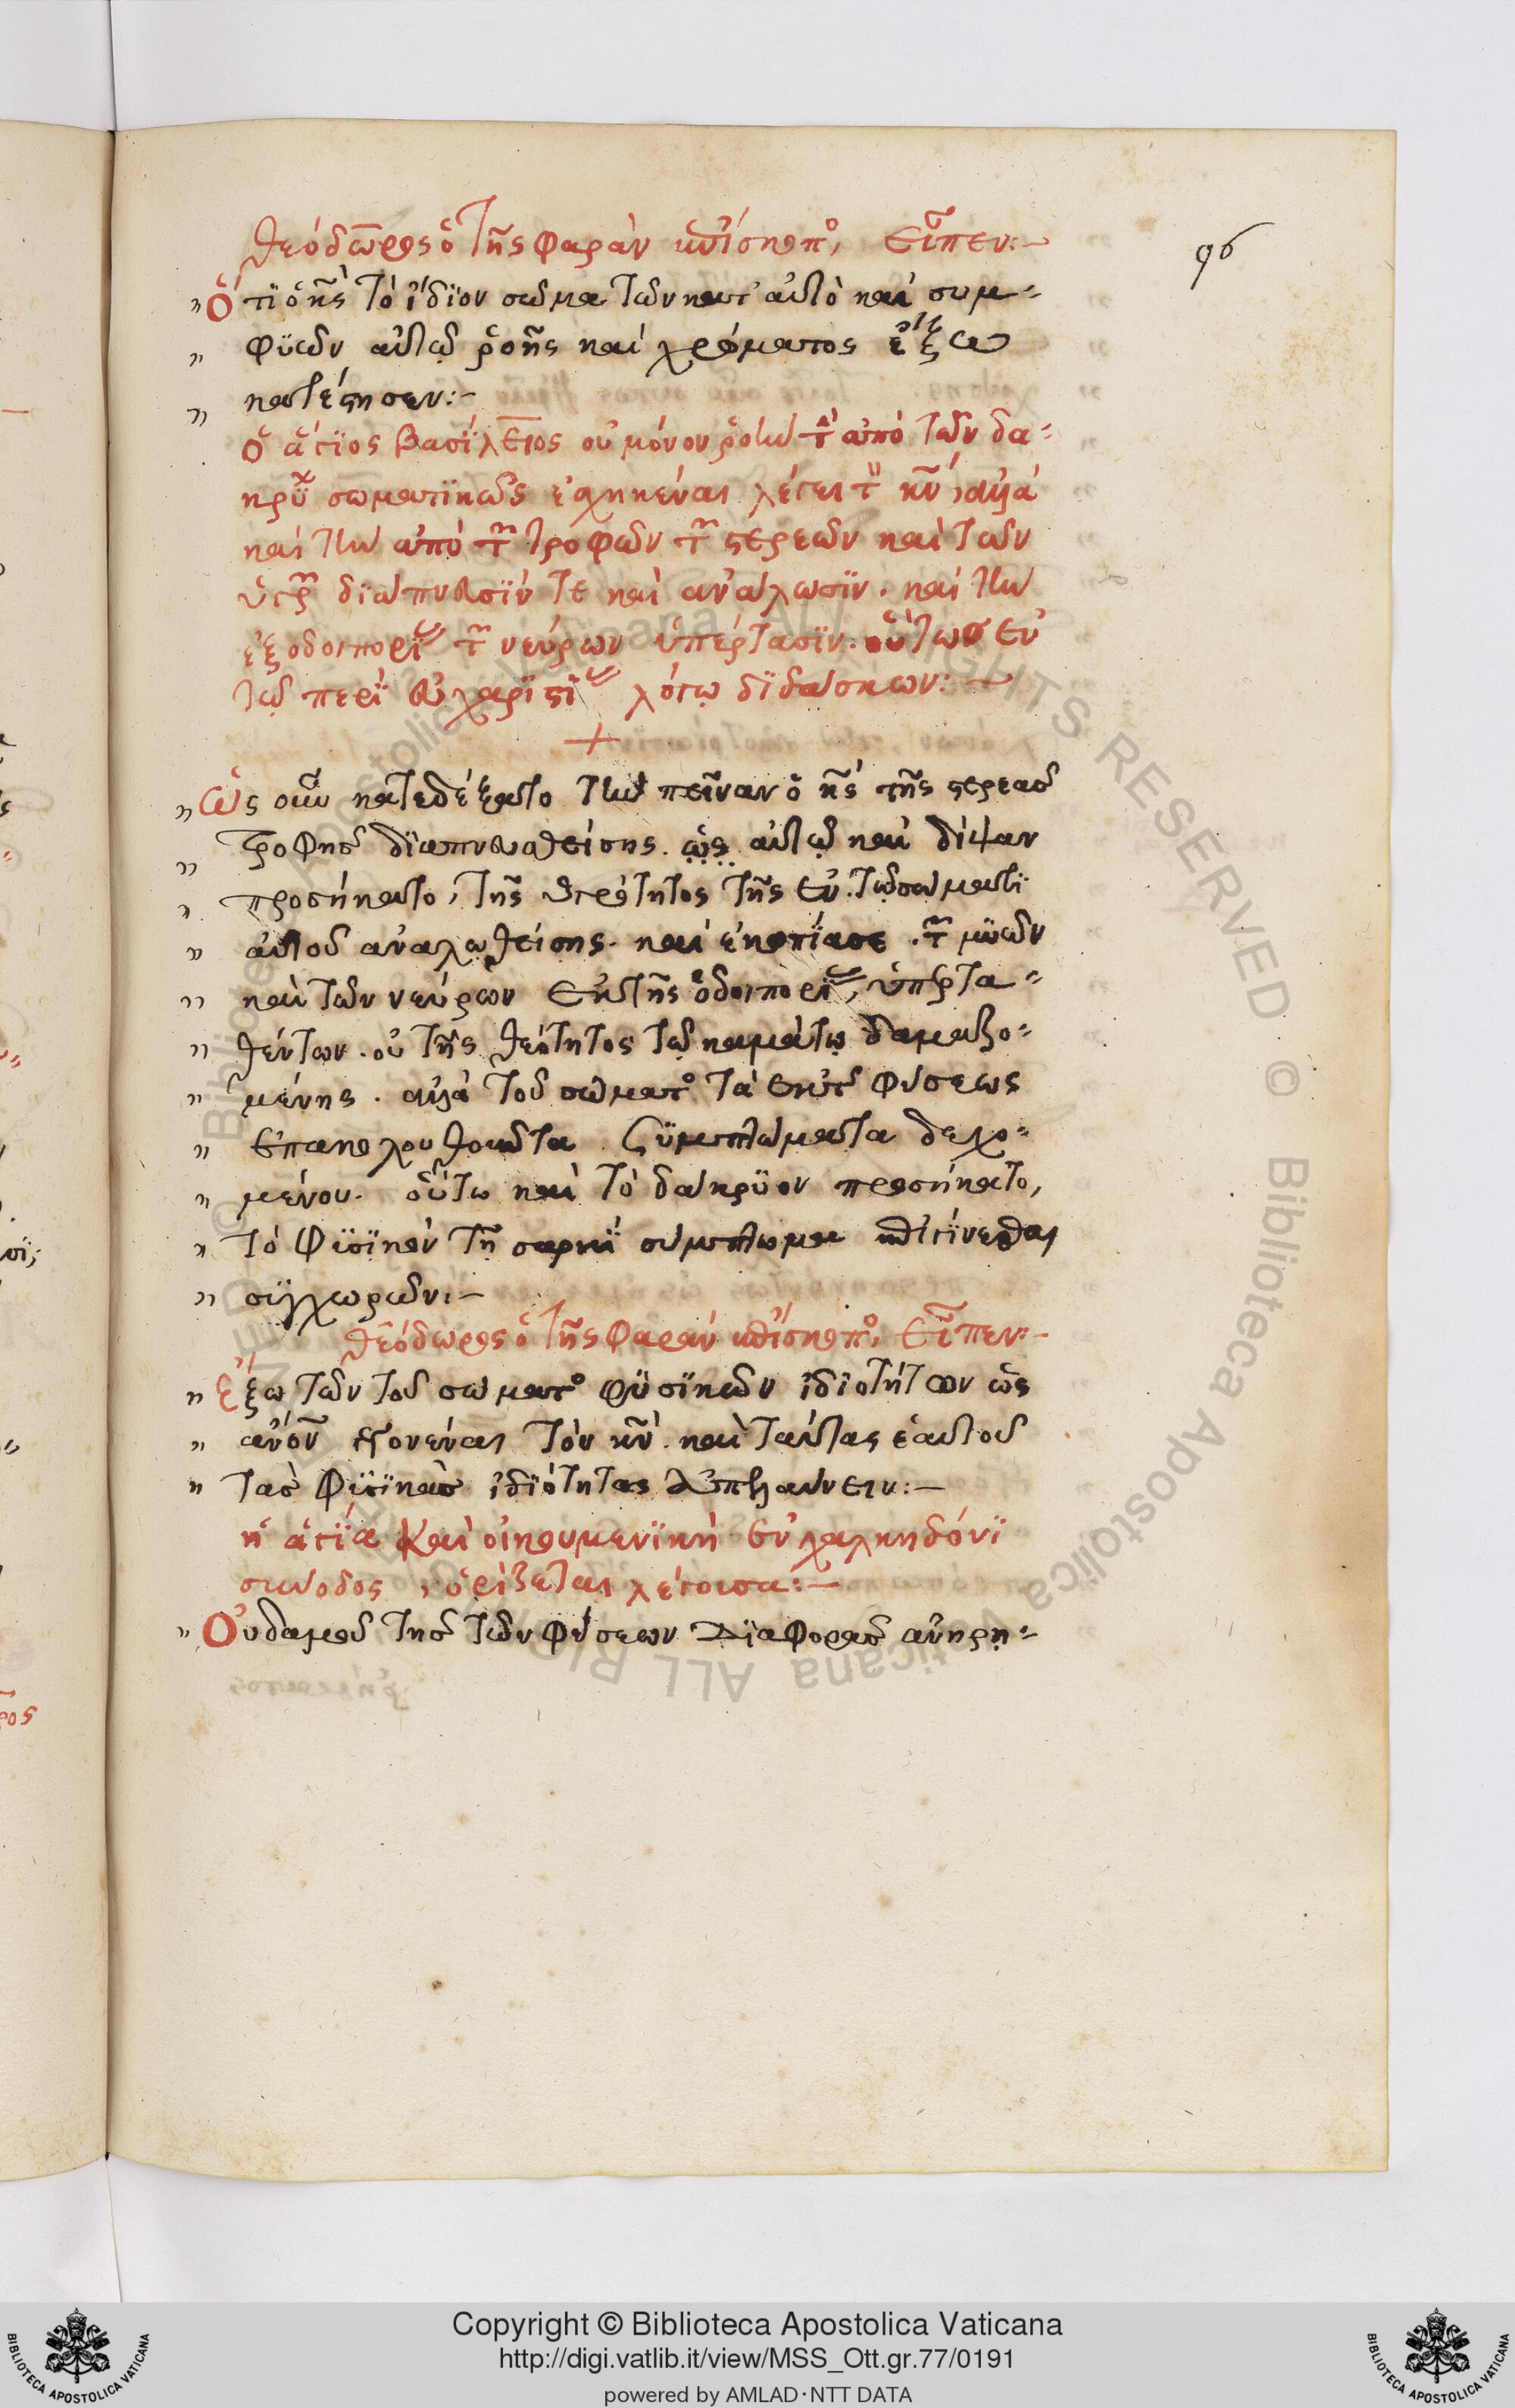 Θεόδωρος ὁ τῆς Φαρὰν ἐπίσκοπο, εἶπεν:-
96
" Ὅτϊ ὁ κς̄ τὸ ἴδϊον σῶμα τῶν κατ' αὐτὸ καὶ συμ-
" φϋῶν αὐτῷ ῥοῆς καὶ χρώματος ἔξω
" κατέστησεν:-
Ὁ ἅγϊος Βασίλειος οὐ μόνον ῥοὴν τὴν ἀπὸ τῶν δα-
κρύ σωματϊκῶς ἐσχηκέναι λέγει τὸν κν̄, ἀλλὰ
καὶ τὴν ἀπὸ τῶν τροφῶν τῶν στερεῶν καὶ τῶν
ὑγρῶν δϊάπνευσϊν τε καὶ ἀνάλωσϊν. καὶ τὴν
ἐξ ὁδοιπορίας τῶν νεύρων ὑπέρτασϊν. οὕτως ἐν
τῷ περὶ εὐχαρϊστίας λόγῳ δϊδάσκων:-
+
" Ὡς οὖν κατεδέξατο τὴν πεῖναν ὁ κς̄ τῆς στερεᾶς
" τροφῆς δϊαπνευσθείσης. ὡς αὐτῷ καὶ δίψαν
" προσήκατο, τῆς ὑγρότητος τῆς ἐν τῷ σώματϊ
" αὐτοῦ ἀναλωθείσης. καὶ ἐκοπίασε. τῶν μϋῶν
" καὶ τῶν νεύρων ἐκ τῆς ὁδοιπορίας, ὑπερτα-
" θέντων. οὐ τῆς θεότητος τῷ καμάτῳ δαμαζο-
" μένης. ἀλλὰ τοῦ σώματο τὰ ἐκ τῆς φύσεως
" ἐπακολουθοῦντα συμπτώματα δεχο-
" μένου. οὕτω καὶ τὸ δάκρϋον προσήκατο,
" τὸ φϋσϊκὸν τῇ σαρκὶ σύμπτωμα ἐπιγίνεσθαι
" συγχωρῶν:-
Θεόδωρος ὁ τῆς Φαρὰν ἐπίσκοπο, εἶπεν:-
" Ἔξω τῶν τοῦ σώματο φϋσϊκῶν ἰδϊοτήτων ὡς
" ἄνον̄ γεγονέναι τὸν κν̄. καὶ ταύτας ἑαυτοῦ
" τὰς φϋσϊκὰς ἰδϊότητας ἀπελαύνειν:-
ἡ ἁγϊία καὶ οἰκουμενϊκὴ ἐν χαλκηδόνϊ
σύνοδος, ὁρίζεται λέγουσα:-
" Οὐδαμοῦ τῆς τῶν φύσεων δϊαφορᾶς ἀνηρη-
Copyright © Biblioteca Apostolica Vaticana
http://digi.vatlib.it/view/MSS_Ott.gr.77/0191
powered by AMLAD·NTT DATA